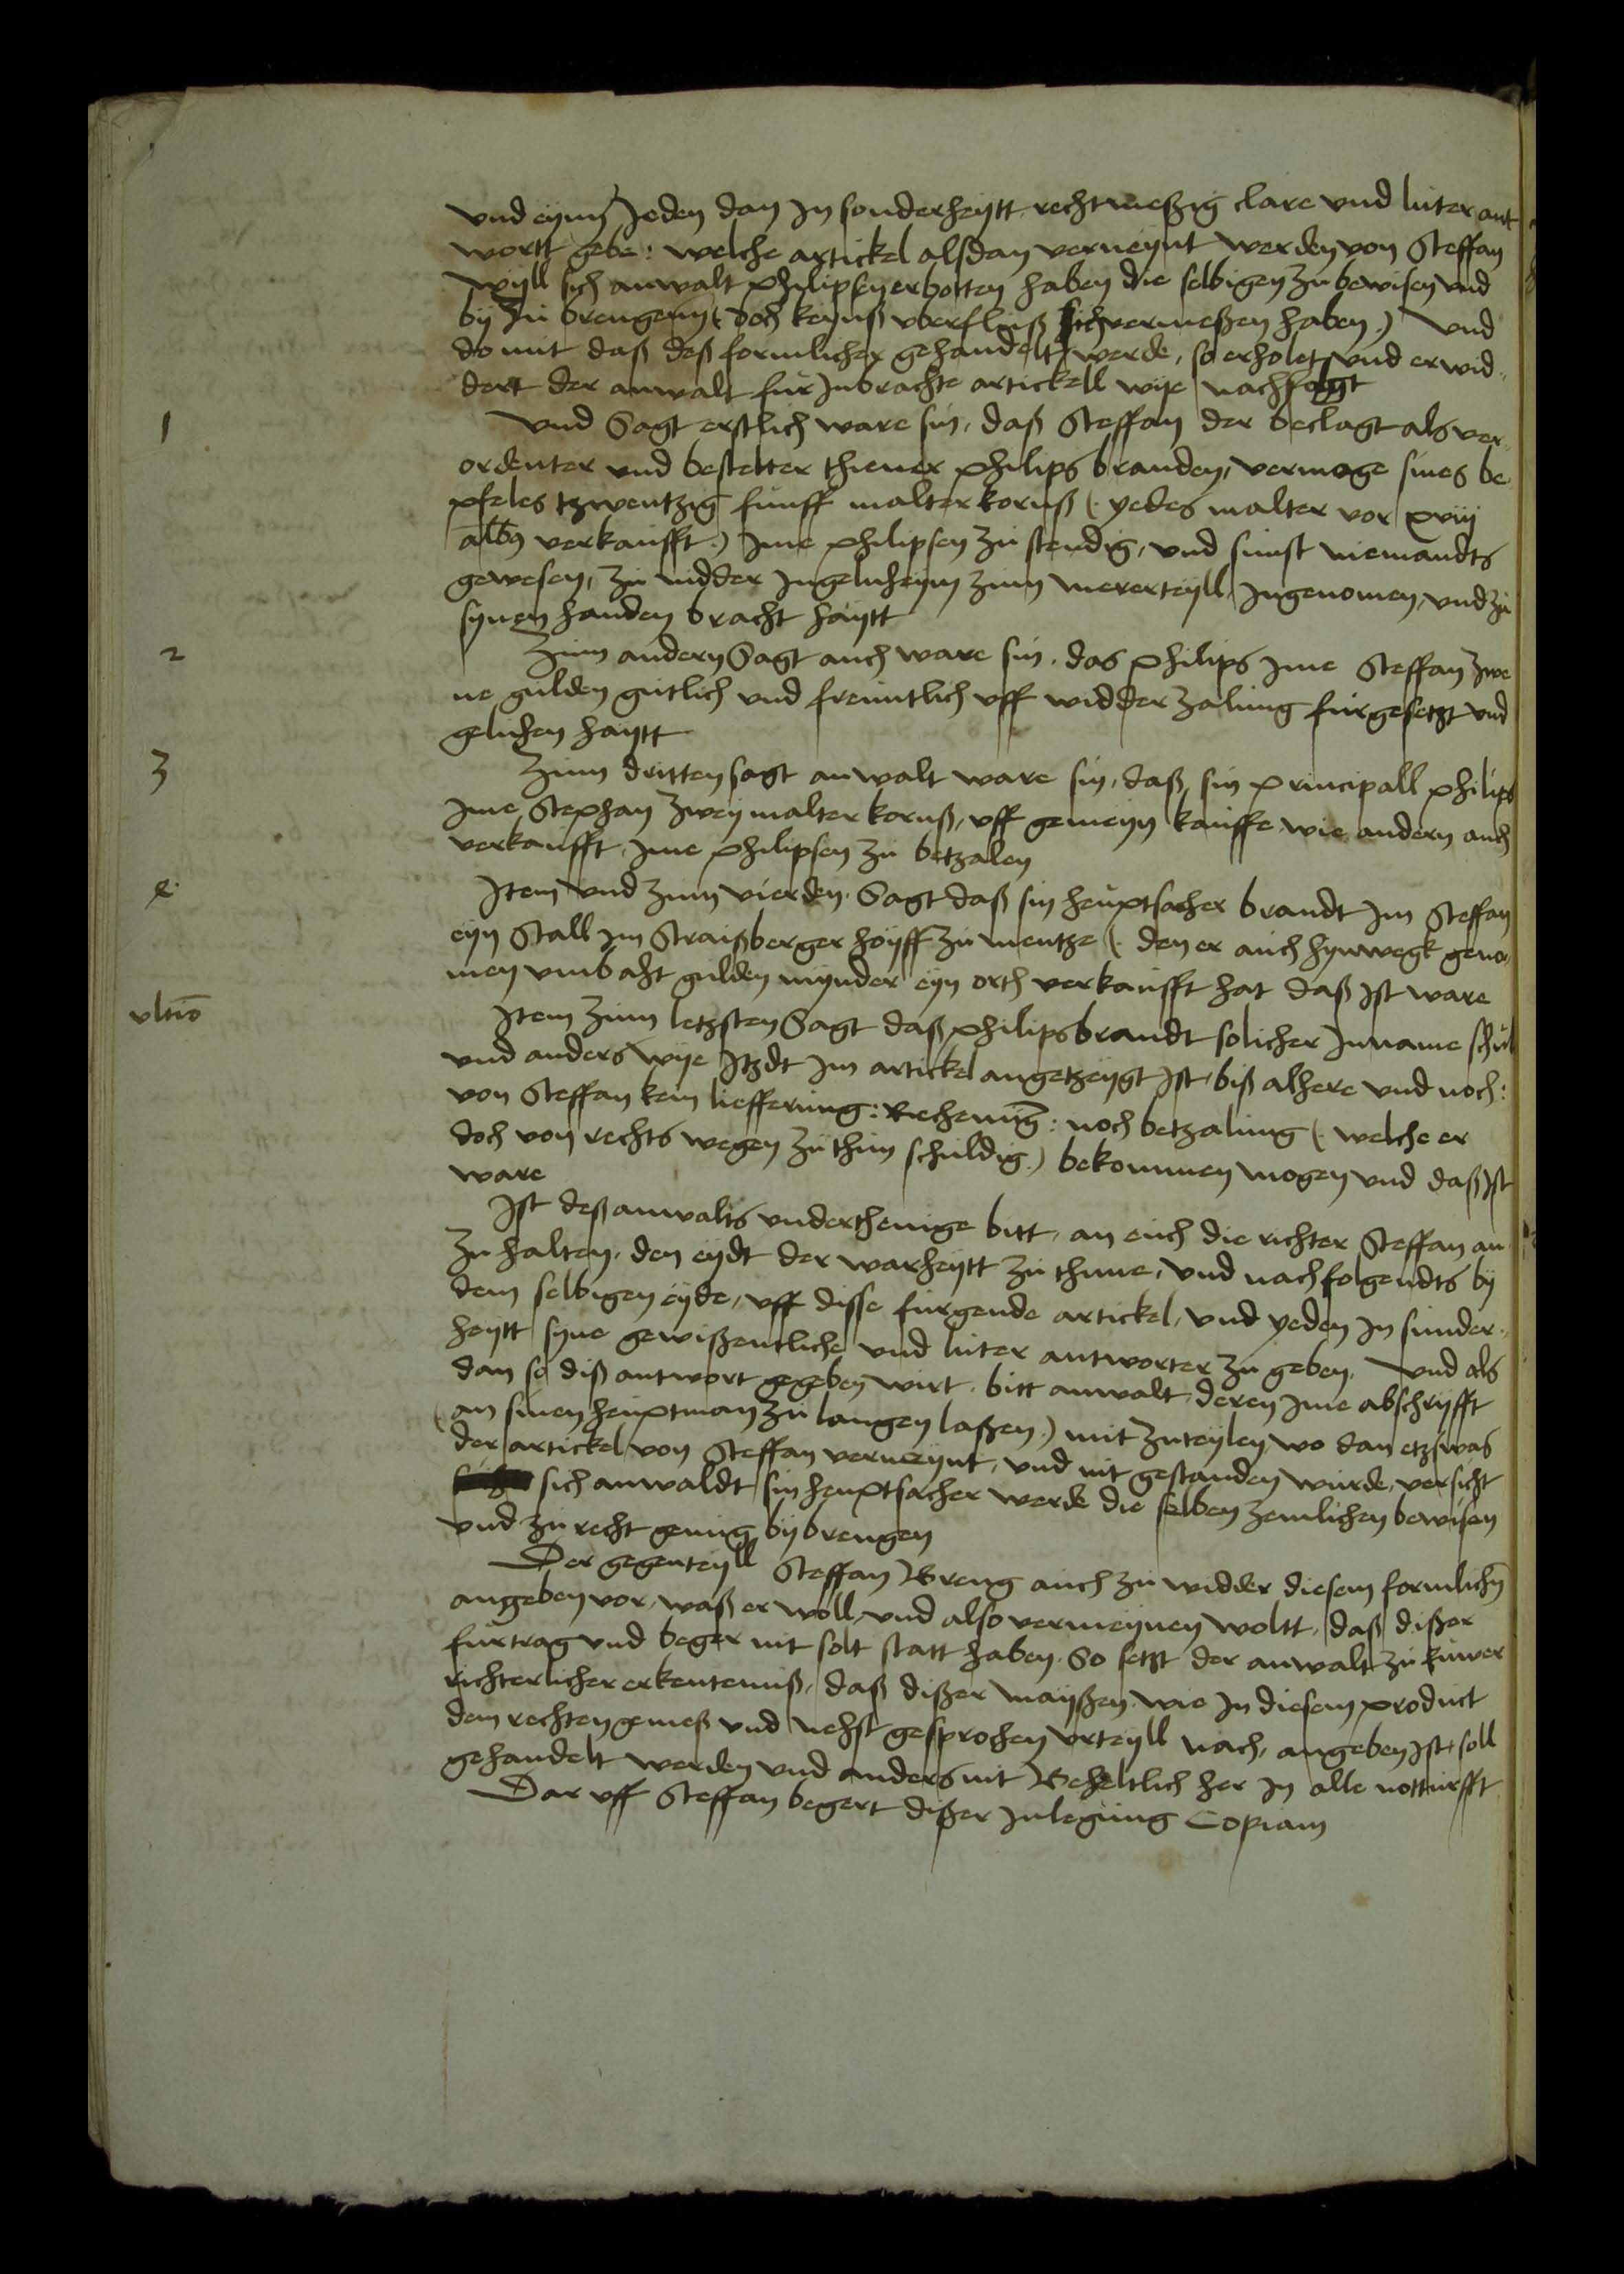 vnd eynn Jeden dan Jn sonderheytt rechtmeßig clare vnd luter ant
wortt gebe: welche artickel alsdan verneynt werden von Steffan
wyll sich anwalt philipsen erbotten haben die selbigen zu bewisen vnd
by zu brengenn (doch keynß vberfluß sich vermeßen haben) vnd
do mit daß deß formlicher gehandelt werde, so erholet vnd erwid„
dert der anwalt fur Jnbrachte artickell wye nachfolgt
1
vnd Sagt erstlich ware sin, daß Steffan der beclagt als ver
ordenter vnd bestelter thiener philips branden, vermoge sines be
pfeles tzwentzig funff malter kornß (yedes malter vor xviij
albus verkaufft) Jme philipsen zu stendig, vnd sunst niemandts
gewesen, zu nidder Jngelnheym zum mererteyll Jngenomen, vnd zu
synen handen bracht haytt
2
Zum andern Sagt auch ware sin, das philips Jme Steffan zwe
ne gulden gutlich vnd freuntlich vff widder zalung furgesetzt vnd
geluhen haytt
3
Zum dritten sagt anwalt ware sin, daß sin principall philips
Jme Stephan zwey malter kornß, vff gemeyn kauffe wie andern auch
verkaufft, Jme philipsen zu betzalen
4
Jtem vnd zum vierden Sagt daß sin heuptsacher brandt Jm Steffan
eyn Stall Jm Straißberger hoyff zu mentze (den er auch hynwegk geno„
men vmb aht gulden mynder eyn orth verkaufft hat daß Jst ware
vltio
Jtem zum letzsten Sagt daß philips brandt solicher Jnname schul
vnd anders wye Jtzdt Jm artickel angetzeygt Jst, biß alhere vnd noch:
von Steffan kein liefferung: Rechenung: noch betzalung (welche er
doch von rechts wegen zu thun schuldig) bekommen mogen vnd daß Jst
ware
Jst deß anwalts vnderthenige bitt, an euch die richter Steffan an
zu halten, den eydt der warheytt zu thune, vnd nachfolgendts by
dem selbigen eyde, vff disse furgende artickel, vnd yeden Jn sunder„
heytt syne gewißentliche vnd luter antworter zu geben, vnd als
dan so diß antwort gegeben wirt, bitt anwalt, deren Jme abschryfft
(an sinen heuptman zu langen laßen) mit zuteylen, wo dan etzwas
der artickel von Steffan verneynt, vnd nit gestanden wurde, versicht
sich anwaldt sin heuptsacher werde die selben zemlichen bewisen
vnd zu recht genug by brengen
Der gegenteyll Steffan Breng auch zu widder diesem formlichen
angeben vor, waß er woll, vnd also vermeynen woltt, daß dißer
furtrag vnd beger nit solt statt haben. So setzt der anwalt zu euwer
richterlicher erkentenniß, daß dißer mayßen wie Jn diesem product
dem rechten gemeß vnd nehst gesprochen vrteyll nach, angeben Jst, soll
gehandelt werden vnd anders nit Beheltlich her Jn alle notturfft
Dar vff Steffan begert dißer Jnlegung Copiam